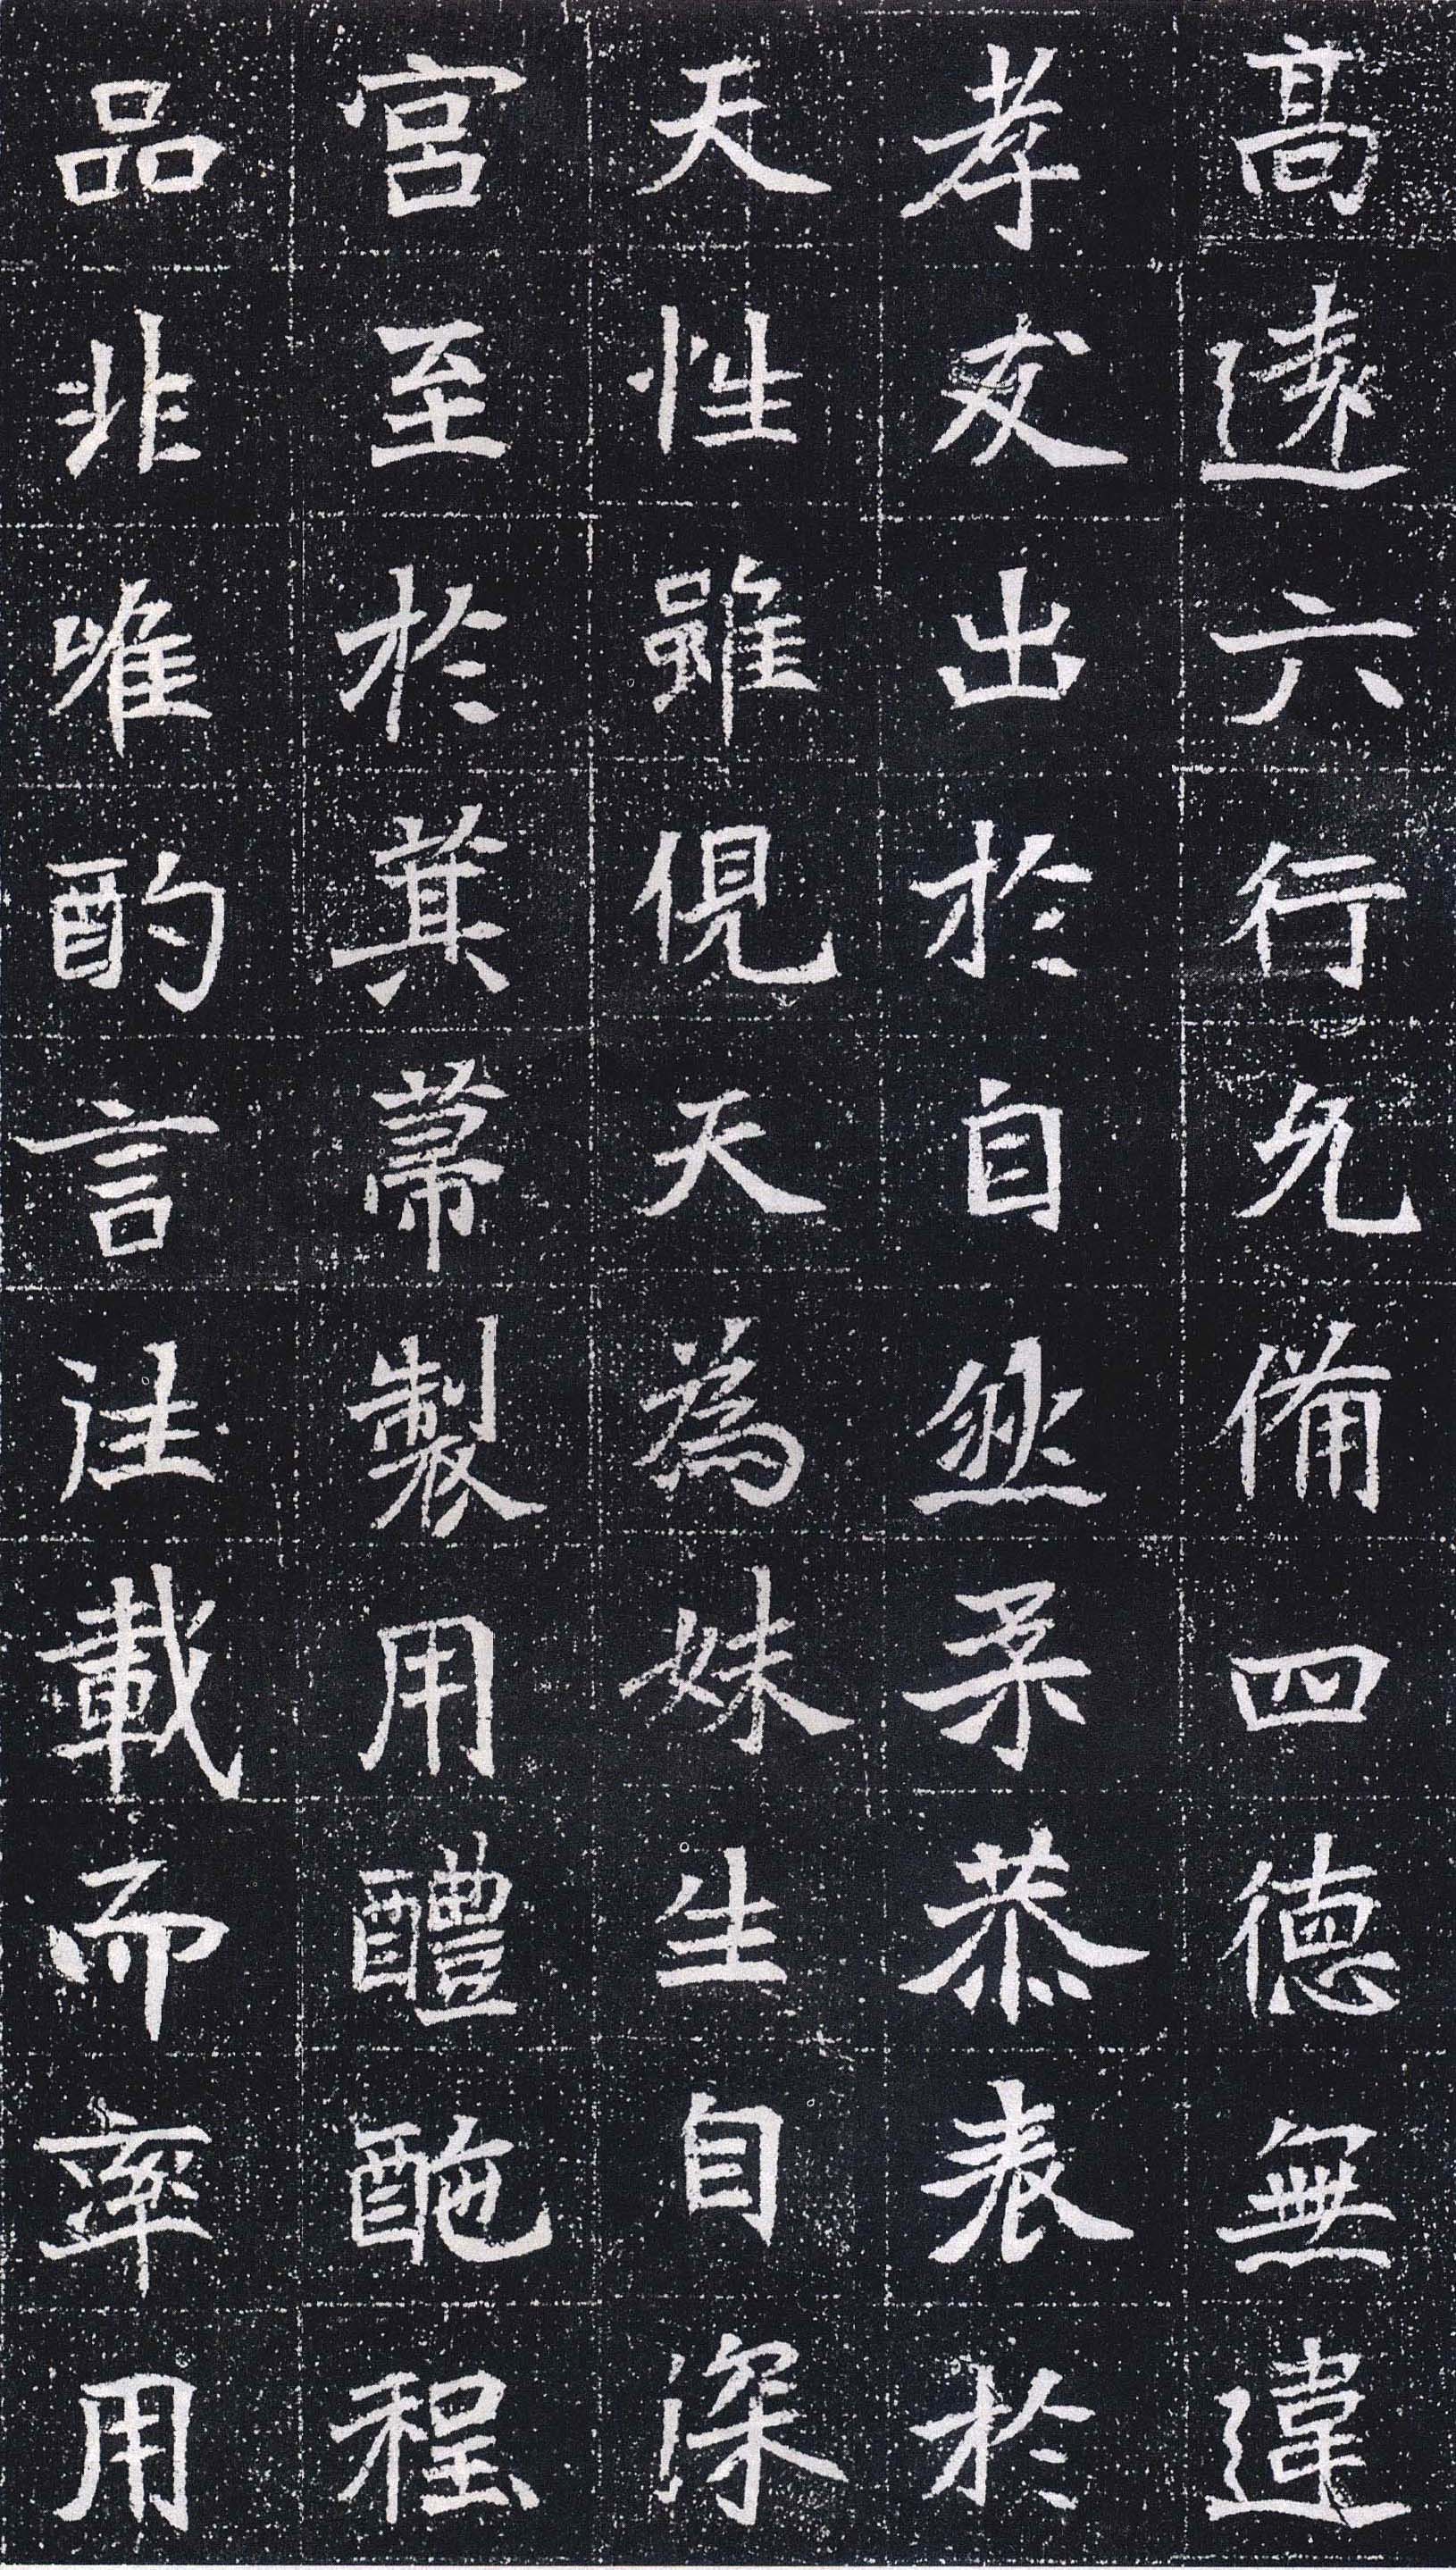 高遠六行允備四德無違
孝友出於自然柔恭表於
天性雖俔天為妹生自深
宮至於萁帚製用醴酏程
品非唯酌言往載而率用